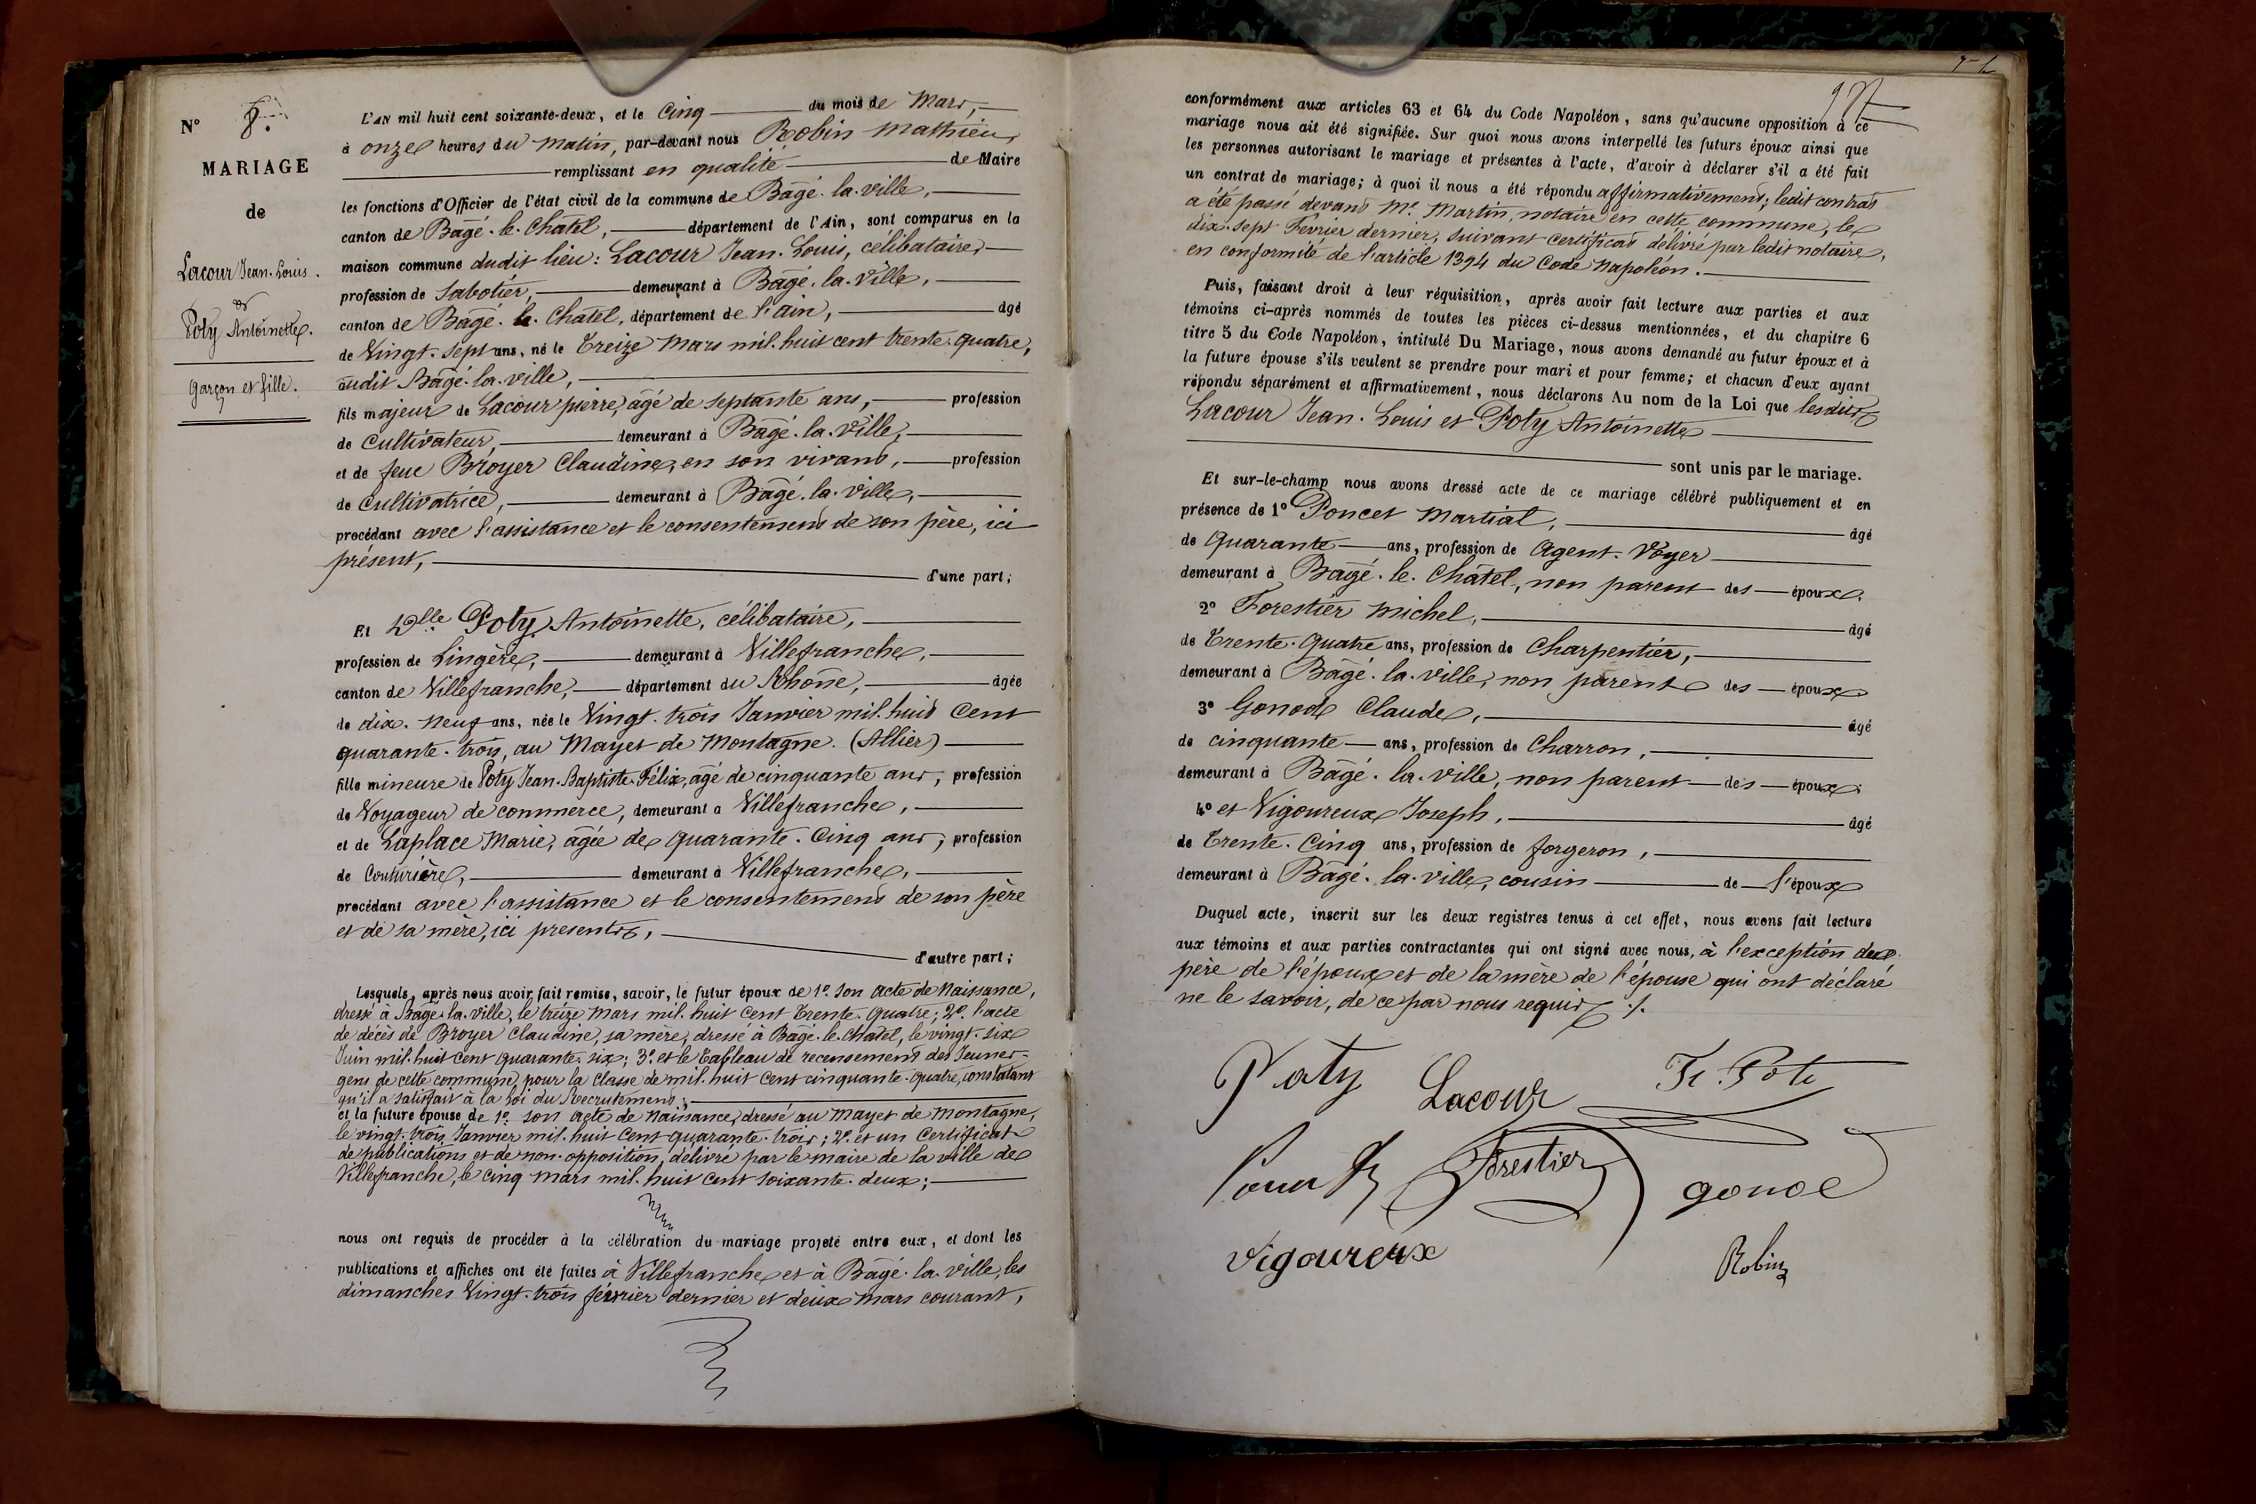 N° 8.
MARIAGE
de
Lacour Jean-Louis.
et
Poty Antoinette.
garçon et fille.
L'AN mil huit cent soixante-deux, et le Cinq du mois de Mars,
à onze heures du matin, par-devant nous Robin Mathieu,
remplissant en qualité de Maire
les fonctions d'Officier de l'état civil de la commune de Bâgé-la-ville,
canton de Bâgé-le-Châtel, département de l'Ain, sont comparus en la
maison commune dudit lieu: Lacour Jean-Louis, célibataire,
profession de Sabotier, demeurant à Bâgé-la-ville,
canton de Bâgé-le-Châtel, département de l'ain, âgé
de Vingt-sept ans, né le Treize Mars mil-huit cent trente-quatre,
audit Bâgé-la-ville,
fils majeur de Lacour pierre, âgé de septante ans, profession
de Cultivateur, demeurant à Bâgé-la-ville,
et de feue Broyer Claudine, en son vivant, profession
de Cultivatrice, demeurant à Bâgé-la-ville,
procédant avec l'assistance et le consentement de son père, ici
présent, d'une part;
Et Dlle Poty Antoinette, célibataire,
profession de Lingère, demeurant à Villefranche,
canton de Villefranche, département du Rhône, âgée
de dix-neuf ans, née le Vingt-trois Janvier mil-huit Cent
quarante-trois, au Mayet de Montagne (Allier)
fille mineure de Poty Jean-Baptiste-Félix, âgé de cinquante ans, profession
de Voyageur de commerce, demeurant a Villefranche,
et de Laplace Marie, âgée de quarante-Cinq ans, profession
de Couturière, demeurant à Villefranche,
procédant avec l'assistance et le consentement de son père
et de sa mère, ici présents,
d'autre part;
Lesquels, après nous avoir fait remise, savoir, le futur époux de 1°. son acte de Naissance,
dressé à Bâgé-la-ville, le treize Mars mil-huit Cent Trente-quatre; 2°. l'acte
de décès de Broyer Claudine, sa mère, dressé à Bâgé-le-Châtel, le vingt-six
Juin mil-huit cent quarante-six; 3°. et le Tableau de recensement des Jeunes-
gens de cette commune, pour la classe de mil-huit cent cinquante-quatre, constatant
qu'il a satisfait à la loi du Recrutement;
et la future épouse de 1°. son acte de Naissance, dressé au Mayet de Montagne,
le vingt-trois Janvier mil-huit Cent quarante-trois; 2°. et un Certificat
de publications et de non-opposition, délivré par le maire de la ville de
Villefranche, le cinq Mars mil-huit cent soixante-deux;
nous ont requis de procéder à la célébration du mariage projeté entre eux, et dont les
publications et affiches ont été faites à Villefranche et à Bâgé-la-ville, les
dimanches Vingt-trois février dernier et deux mars courant,
conformément aux articles 63 et 64 du Code Napoléon, sans qu'aucune opposition à ce
mariage nous ait été signifiée. Sur quoi nous avons interpellé les futurs époux ainsi que
les personnes autorisant le mariage et présentes à l'acte, d'avoir à déclarer s'il a été fait
un contrat de mariage; à quoi il nous a été répondu affirmativement; ledit contrat
a été passé devant Me. Martin, notaire en cette commune, le
dix-sept Février dernier, suivant certificat délivré par ledit notaire,
en conformité de l'article 1394 du Code Napoléon.
Puis, faisant droit à leur réquisition, après avoir fait lecture aux parties et aux
témoins ci-après nommés de toutes les pièces ci-dessus mentionnées, et du chapitre 6
titre 5 du Code Napoléon, intitulé Du Mariage, nous avons demandé au futur époux et à
la future épouse s'ils veulent se prendre pour mari et pour femme; et chacun d'eux ayant
répondu séparément et affirmativement, nous déclarons Au nom de la Loi que lesdits
Lacour Jean-Louis et Poty Antoinette
sont unis par le mariage.
Et sur-le-champ nous avons dressé acte de ce mariage célébré publiquement et en
présence de 1° Poncet Martial, âgé
de quarante ans, profession de Agent-Voyer
demeurant à Bâgé-le-Châtel, non parent des époux.
2° Forestier Michel, âgé
de Trente-quatre ans, profession de Charpentier,
demeurant à Bâgé-la-ville, non parent des époux
3° Gonod Claude, âgé
de cinquante ans, profession de Charron,
demeurant à Bâgé-la-ville, non parent des époux.
4° et Vigoureux Joseph, âgé
de Trente-Cinq ans, profession de forgeron,
demeurant à Bâgé-la-ville, cousin de l'époux
Duquel acte, inscrit sur les deux registres tenus à cet effet, nous avons fait lecture
aux témoins et aux parties contractantes qui ont signé avec nous, à l'exception du
père de l'époux et de la mère de l'épouse qui ont déclaré
ne le savoir, de ce par nous requis ./.
Poty Lacour
Forestier gonod
Vigoureux Robin